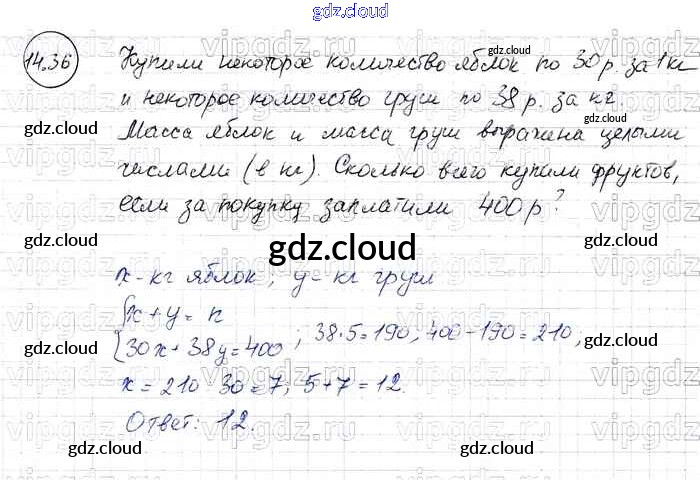 gdz.cloud
14.36
Купили некоторое количество яблок по 30 р. за 1 кг
и некоторое количество груш по 38 р. за кг.
Масса яблок и масса груш выражена целыми
числами (в кг). Сколько всего купили фруктов,
если за покупку заплатили 400 р?
gdz.cloud
x - кг яблок; y - кг груш
{x + y = n
{30x + 38y = 400; 38·5 = 190, 400 - 190 = 210;
x = 210 30 = 7; 5 + 7 = 12.
Ответ: 12.
gdz.cloud